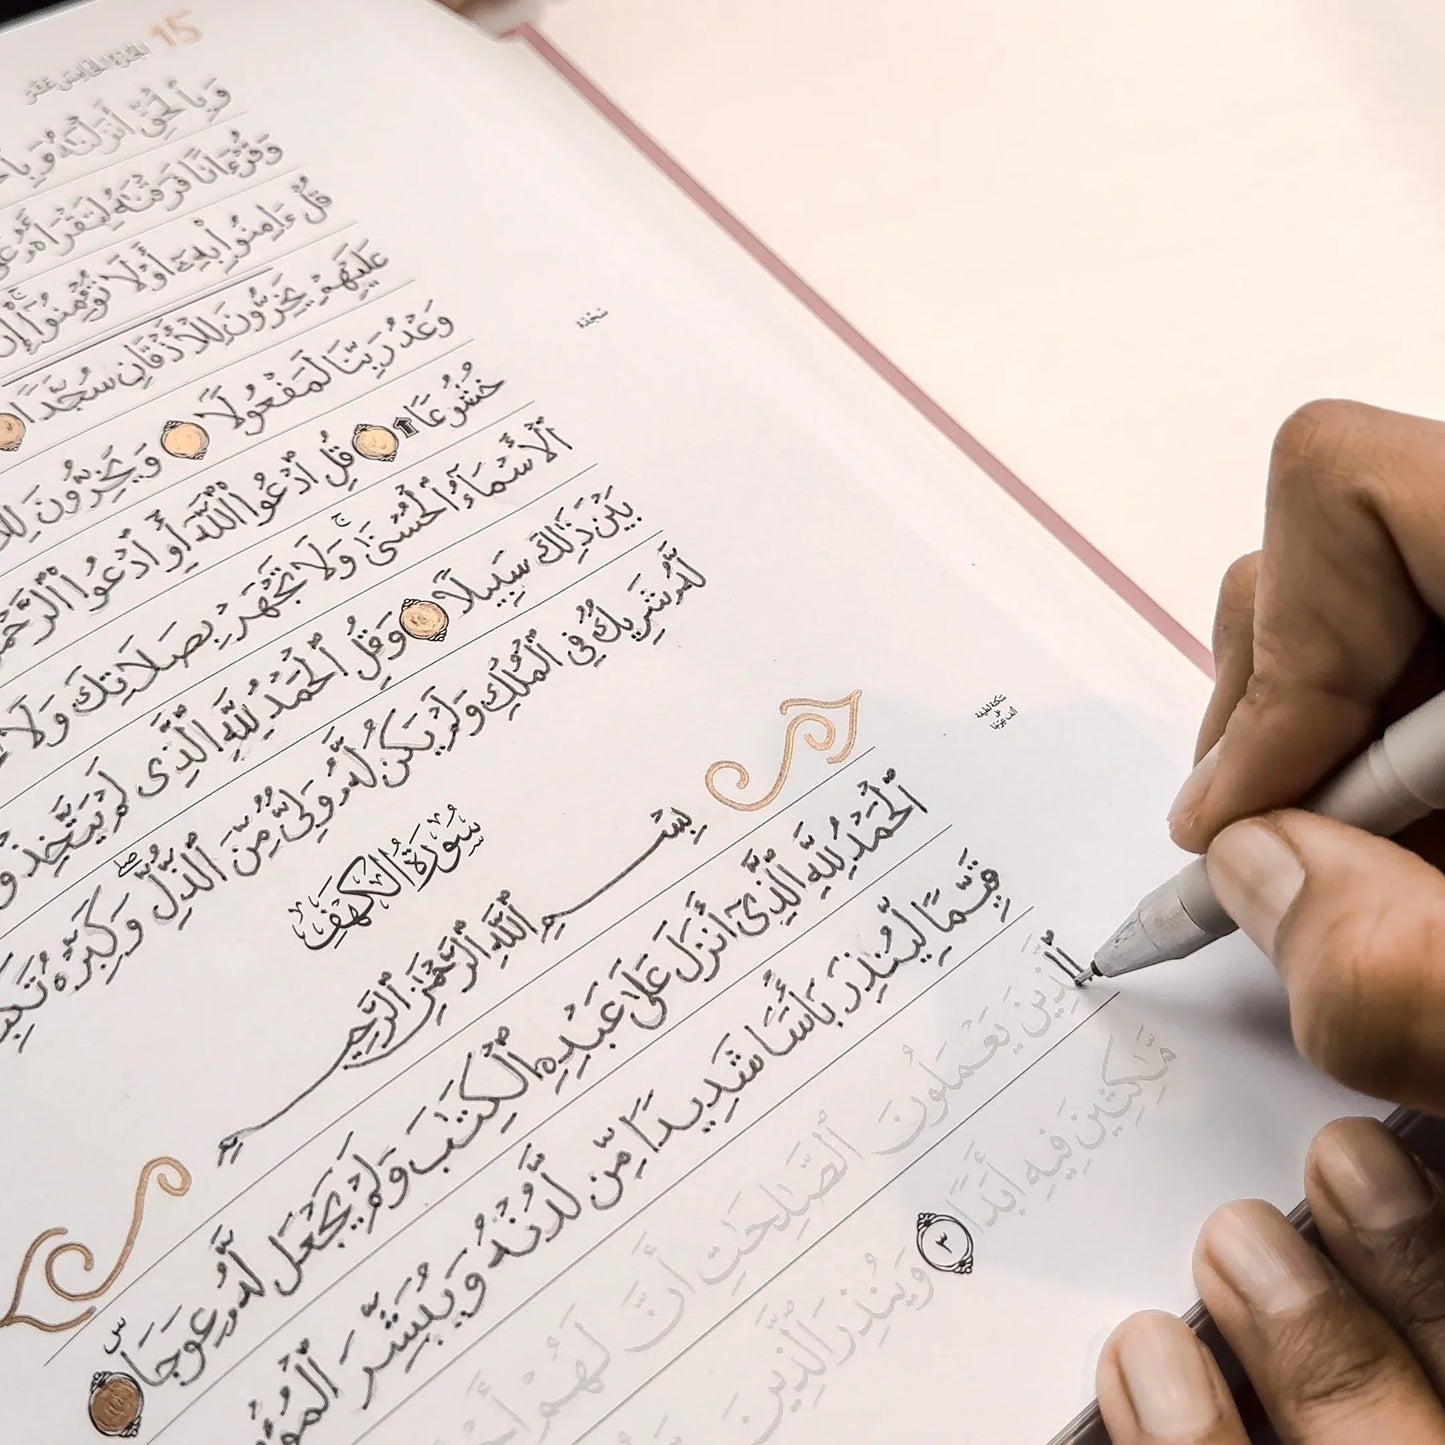 الجزء الخامس عشر 15
وَبِٱلْحَقِّ أَنزَلْنَٰهُ وَبِٱ
وَقُرْءَانًا فَرَقْنَٰهُ لِتَقْرَأَهُۥ
قُلْ ءَامِنُوا۟ بِهِۦٓ أَوْ لَا تُؤْمِنُوٓا۟ ۚ إِنَّ
عَلَيْهِمْ يَخِرُّونَ لِلْأَذْقَانِ سُجَّدًا
وَعْدُ رَبِّنَا لَمَفْعُولًا وَيَخِرُّونَ
سجدة
خُشُوعًا قُلِ ٱدْعُوا۟ ٱللَّهَ أَوِ ٱدْعُوا۟ ٱلرَّحْمَٰ
ٱلْأَسْمَآءُ ٱلْحُسْنَىٰ ۚ وَلَا تَجْهَرْ بِصَلَاتِكَ وَلَا
بَيْنَ ذَٰلِكَ سَبِيلًا وَقُلِ ٱلْحَمْدُ لِلَّهِ ٱلَّذِى لَمْ يَتَّخِذْ
لَّهُۥ شَرِيكٌ فِى ٱلْمُلْكِ وَلَمْ يَكُن لَّهُۥ وَلِىٌّ مِّنَ ٱلذُّلِّ ۖ وَكَبِّرْهُ تَكْبِ
سُورَةُ الكَهْفِ
بِسْمِ ٱللَّهِ ٱلرَّحْمَٰنِ ٱلرَّحِيمِ
ٱلْحَمْدُ لِلَّهِ ٱلَّذِىٓ أَنزَلَ عَلَىٰ عَبْدِهِ ٱلْكِتَٰبَ وَلَمْ يَجْعَل لَّهُۥ عِوَجَا ۜ
قَيِّمًا لِّيُنذِرَ بَأْسًا شَدِيدًا مِّن لَّدُنْهُ وَيُبَشِّرَ ٱلْمُؤْ
ٱلَّذِينَ يَعْمَلُونَ ٱلصَّٰلِحَٰتِ أَنَّ لَهُمْ أَ
مَّٰكِثِينَ فِيهِ أَبَدًا ٣ وَيُنذِرَ ٱلَّذِينَ